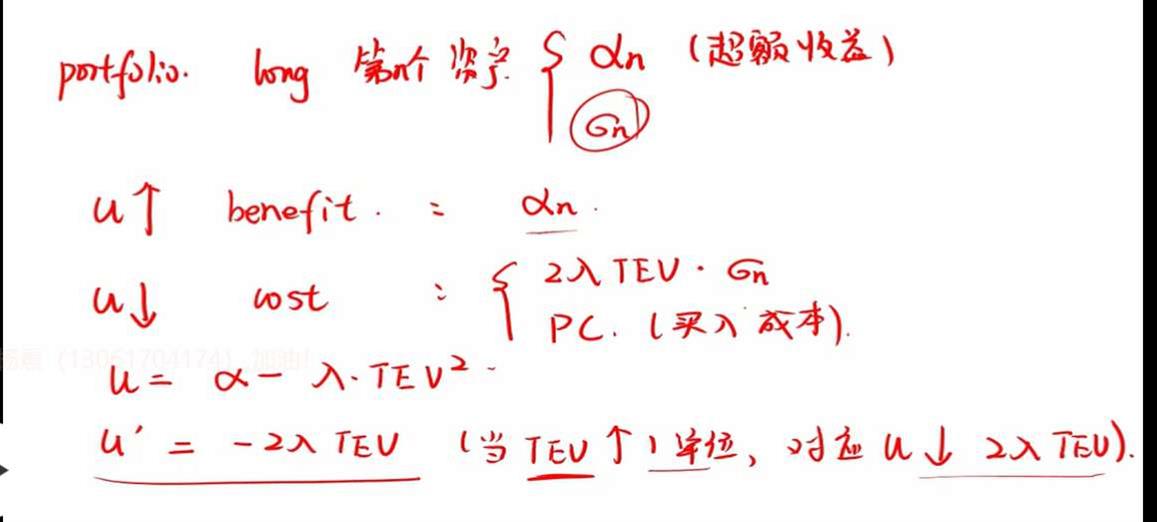 portfolio. long 第n个 资产 { αn (超额收益)
σn
u↑ benefit. : αn.
u↓ cost : { 2λ TEV · σn
PC. (买入成本).
(13061704174) 加油!
u = α - λ·TEV²
u' = -2λ TEV (当 TEV ↑ 1 单位, 对应 u ↓ 2λ TEV).